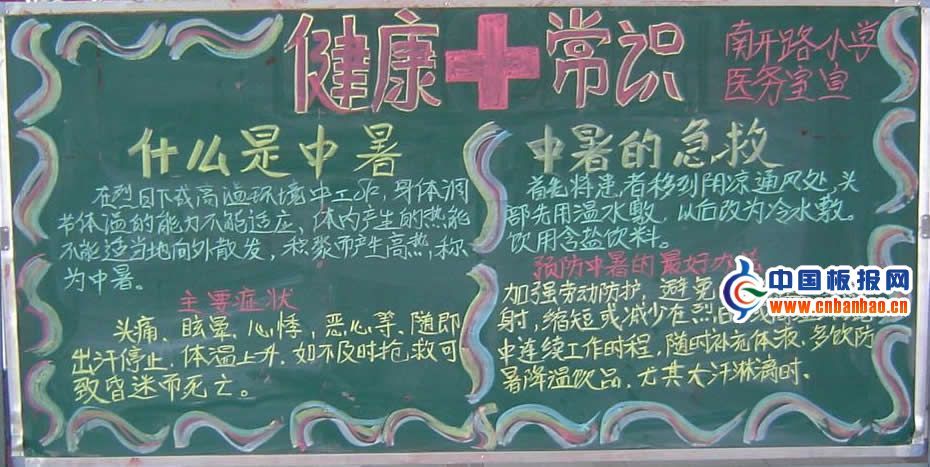 健康常识
南开路小学
医务室宣
什么是中暑
在烈日下或高温环境中工作,身体调
节体温的能力不能适应,体内产生的热能
不能适当地向外散发,积聚而产生高热,称
为中暑。
主要症状
头痛、眩晕、心悸,恶心等、随即
出汗停止,体温上升,如不及时抢救可
致昏迷而死亡。
中暑的急救
首先将患者移到阴凉通风处,头
部先用温水敷,以后改为冷水敷。
饮用含盐饮料。
预防中暑的最好办
加强劳动防护,避
射,缩短或减少在烈日
中连续工作时程,随时补充体液,多饮防
暑降温饮品,尤其大汗淋漓时.
中国板报网
www.cnbanbao.cn